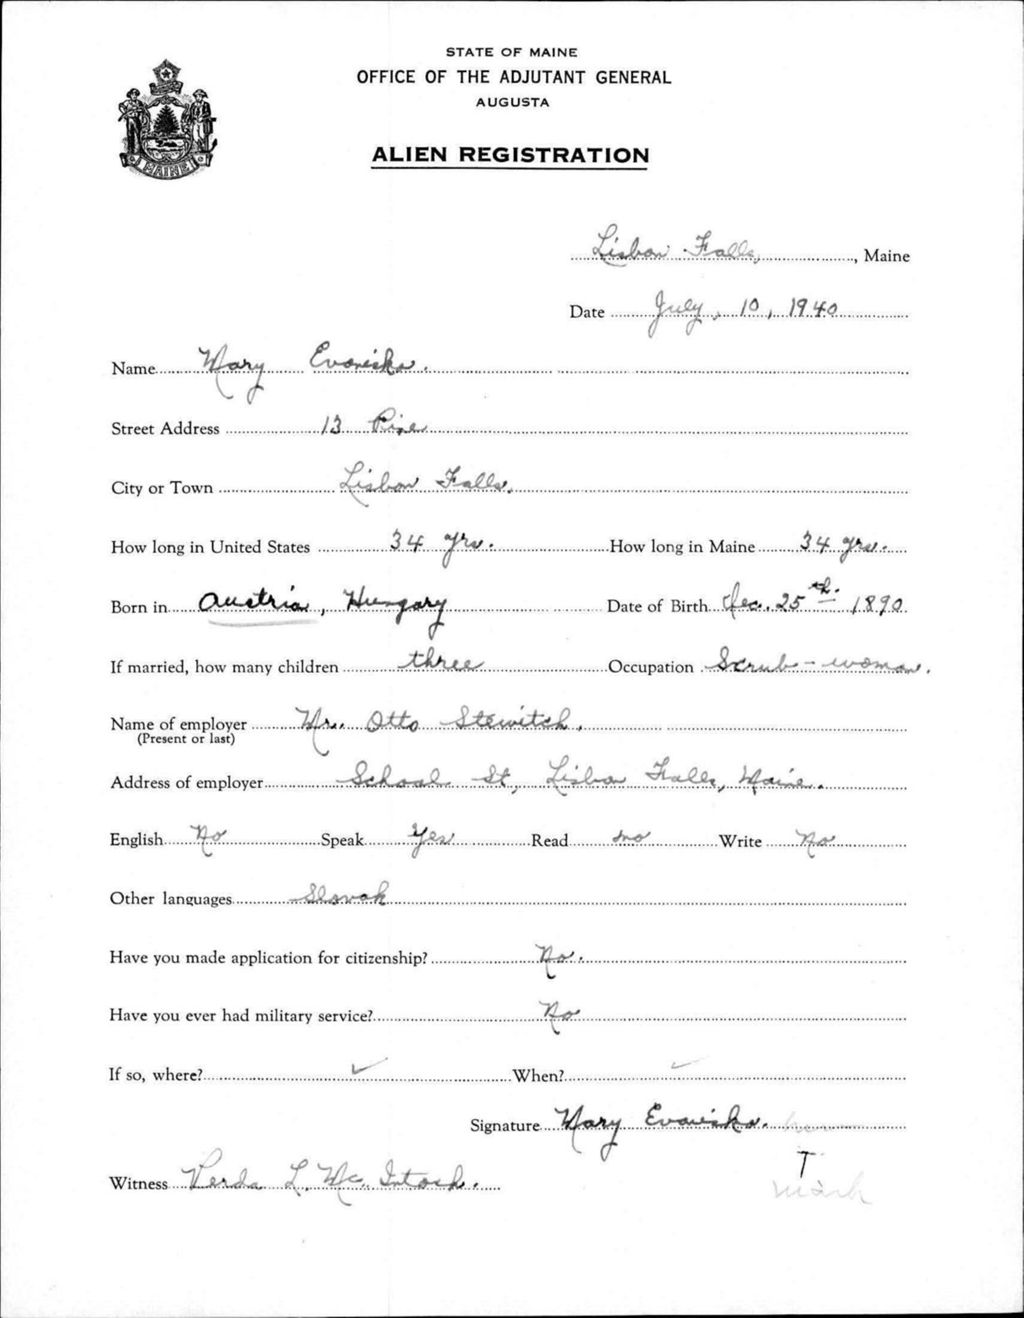 STATE OF MAINE
OFFICE OF THE ADJUTANT GENERAL
AUGUSTA
ALIEN REGISTRATION
MAINE
Lisbon Falls, Maine
Date July, 10, 1940
Name Mary Evanisko.
Street Address 13 Pine
City or Town Lisbon Falls.
How long in United States 34 yrs. How long in Maine 34 yrs.
Born in Austria, Hungary Date of Birth Dec. 25th. 1890
If married, how many children three Occupation Scrub-woman.
Name of employer Mr. Otto Stewitch.
(Present or last)
Address of employer School St, Lisbon Falls, Maine.
English No Speak Yes Read no Write No
Other languages Slovak
Have you made application for citizenship? No.
Have you ever had military service? No
If so, where? ✓ When? ✓
Signature Mary Evanisko. her
T
Witness Verda L. Mc Intosh.
mark